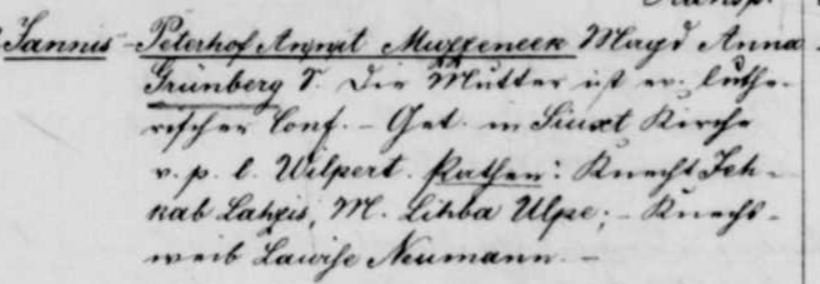 Jannis - Peterhof Annut Muzzeneek Mayd Anna
Grünberg S. Die Mutter ist ev. luthe-
rischer Conf. - Get. in Siuxt Kirche
v. p. l. Wilpert. Pathen: Knecht Jeh-
kab Lahzis, M. Lihba Ulpe; - Knechs-
weib Lawise Neumann. -